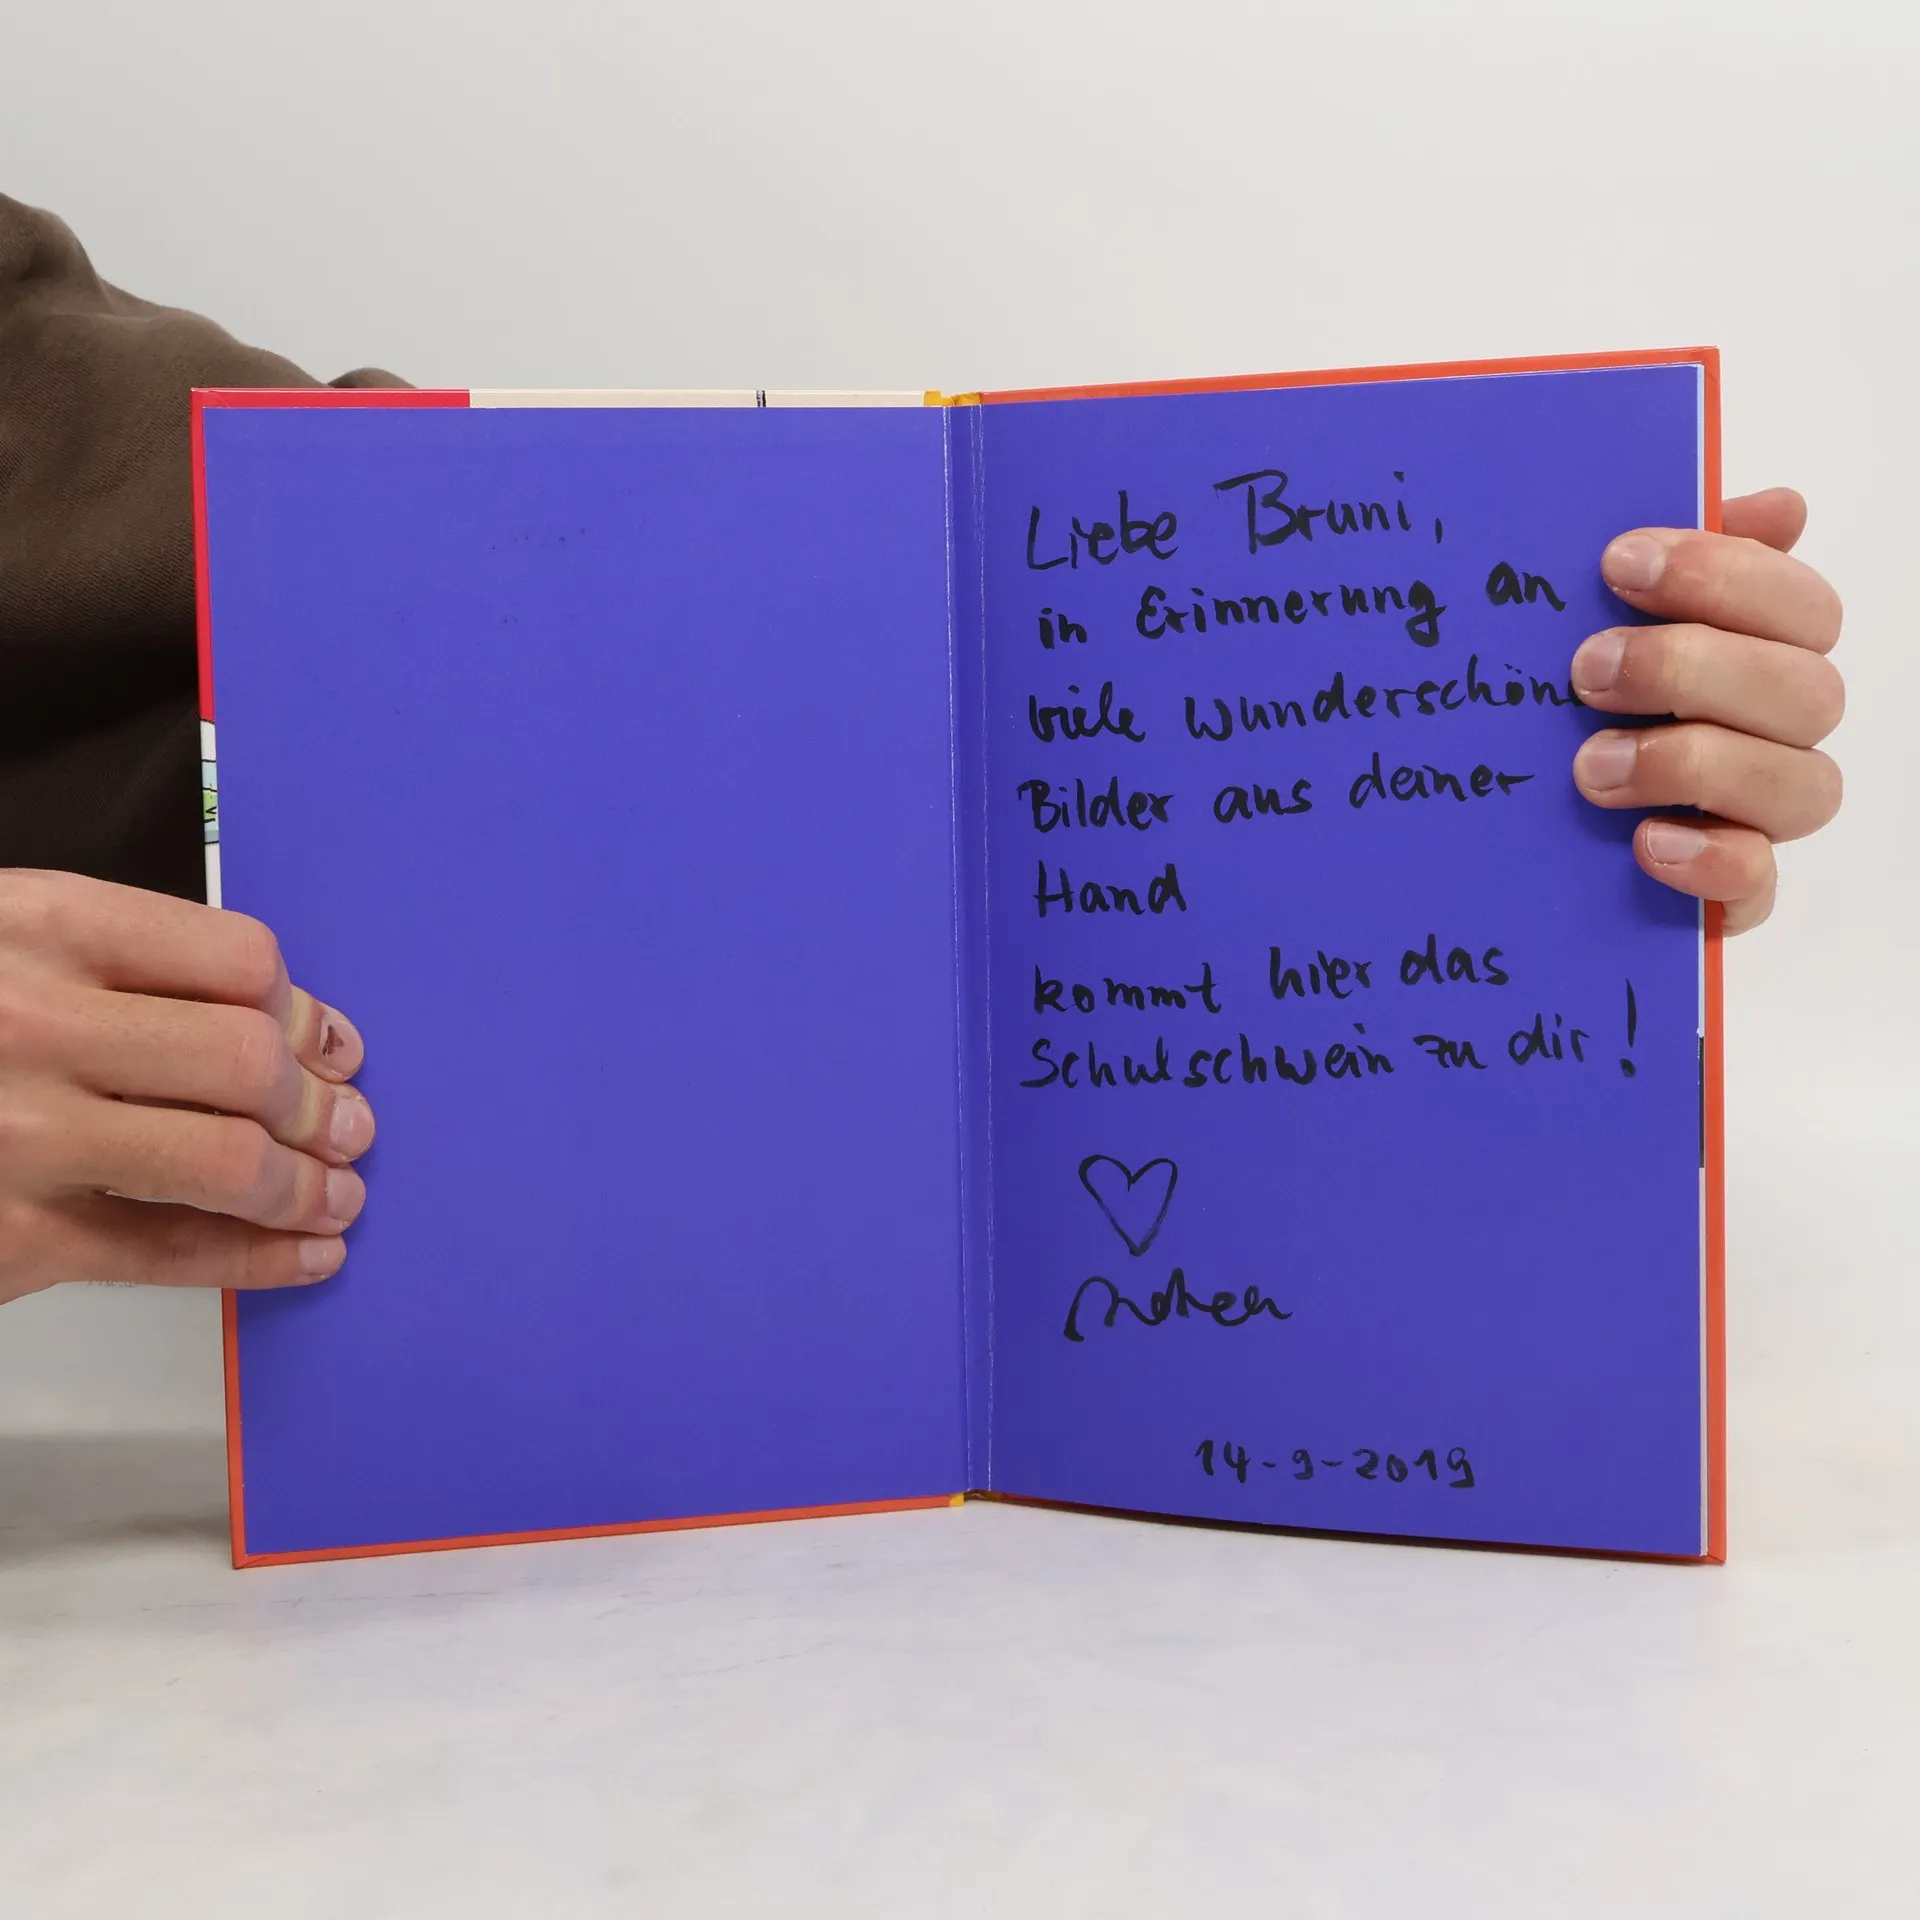 Liebe Bruni,
in Erinnerung an
viele wunderschön
Bilder aus deiner
Hand
kommt hier das
Schulschwein zu dir!
14-9-2019